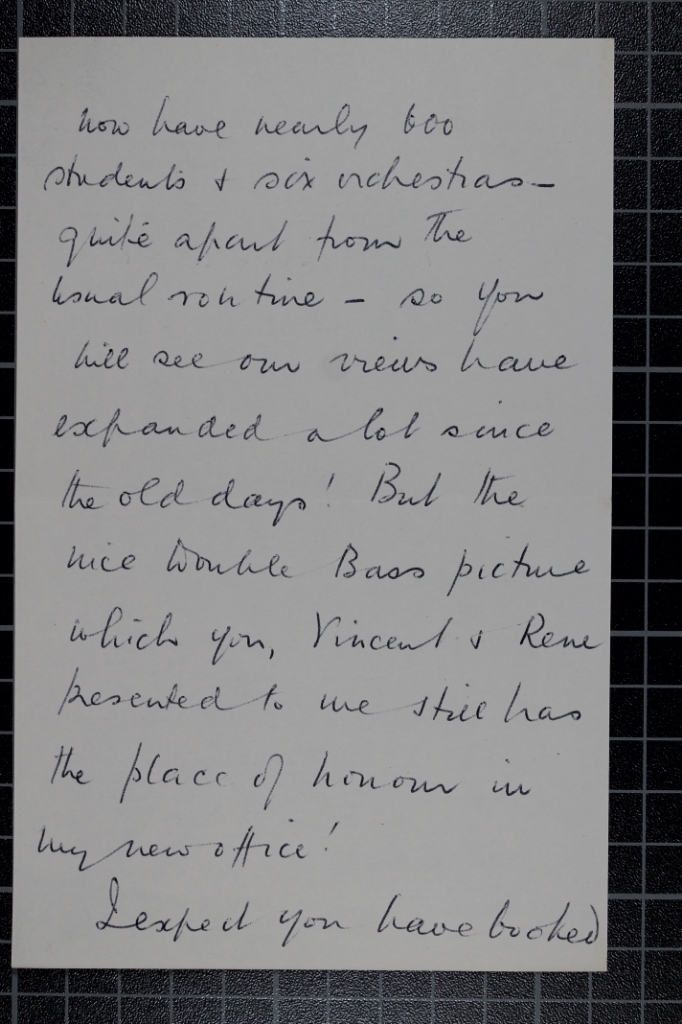 now have nearly 600
students & six orchestras –
quite apart from the
usual routine – so you
will see our views have
expanded a lot since
the old days! But the
nice Double Bass picture
which you, Vincent & Rene
presented to me still has
the place of honour in
my new office!
I expect you have booked